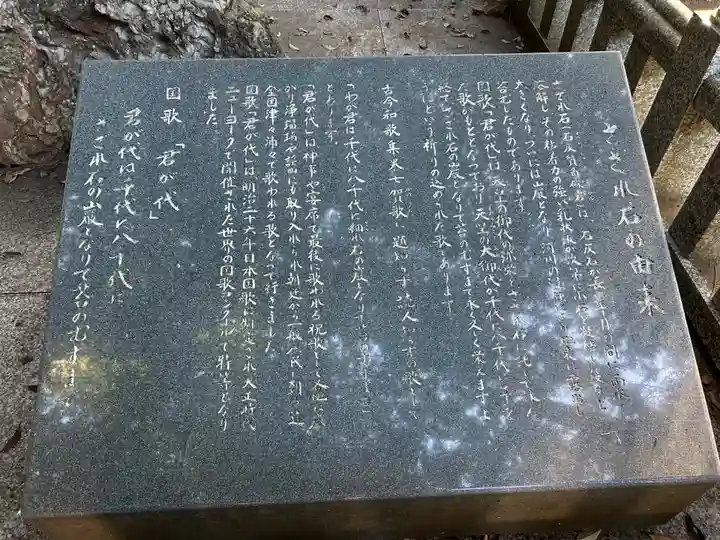 さざれ石の由来
さざれ石（石灰質角礫岩）は、石灰石が長い年月の間に雨水で
溶解し、その粘着力の強い乳状液が次第に小石を凝結して
大きくなり、ついには巌となり、河川の
苔むしたものであります。
国歌「君が代」は、天皇の御代の弥栄をさざれ石にもして
た歌がもととなっており、天皇の大御代が千代に八千代に
さざれ石の巌となりて苔のむすまで永く久しく栄えますよ
うにという祈りの込められた歌であります
古今和歌集巻七賀歌に題知らず読人知らずの歌として
「わが君は千代に八千代に細れ石の巌となりて苔のむすまで」
とあります。
「君が代」は神事や宴席で最後に歌われる祝歌として
から浄瑠璃や謡曲にも取り入れられ朝廷から一般の民に到る迄
全国津々浦々で歌われる歌となって行きました。
国歌「君が代」は明治二十六年日本国歌に制定され大正時代
ニューヨークで開催された世界の国歌コンクールで一等となり
ました。
国歌 「君が代」
君が代は 千代に八千代に
さざれ石の 巌となりて 苔のむすまで